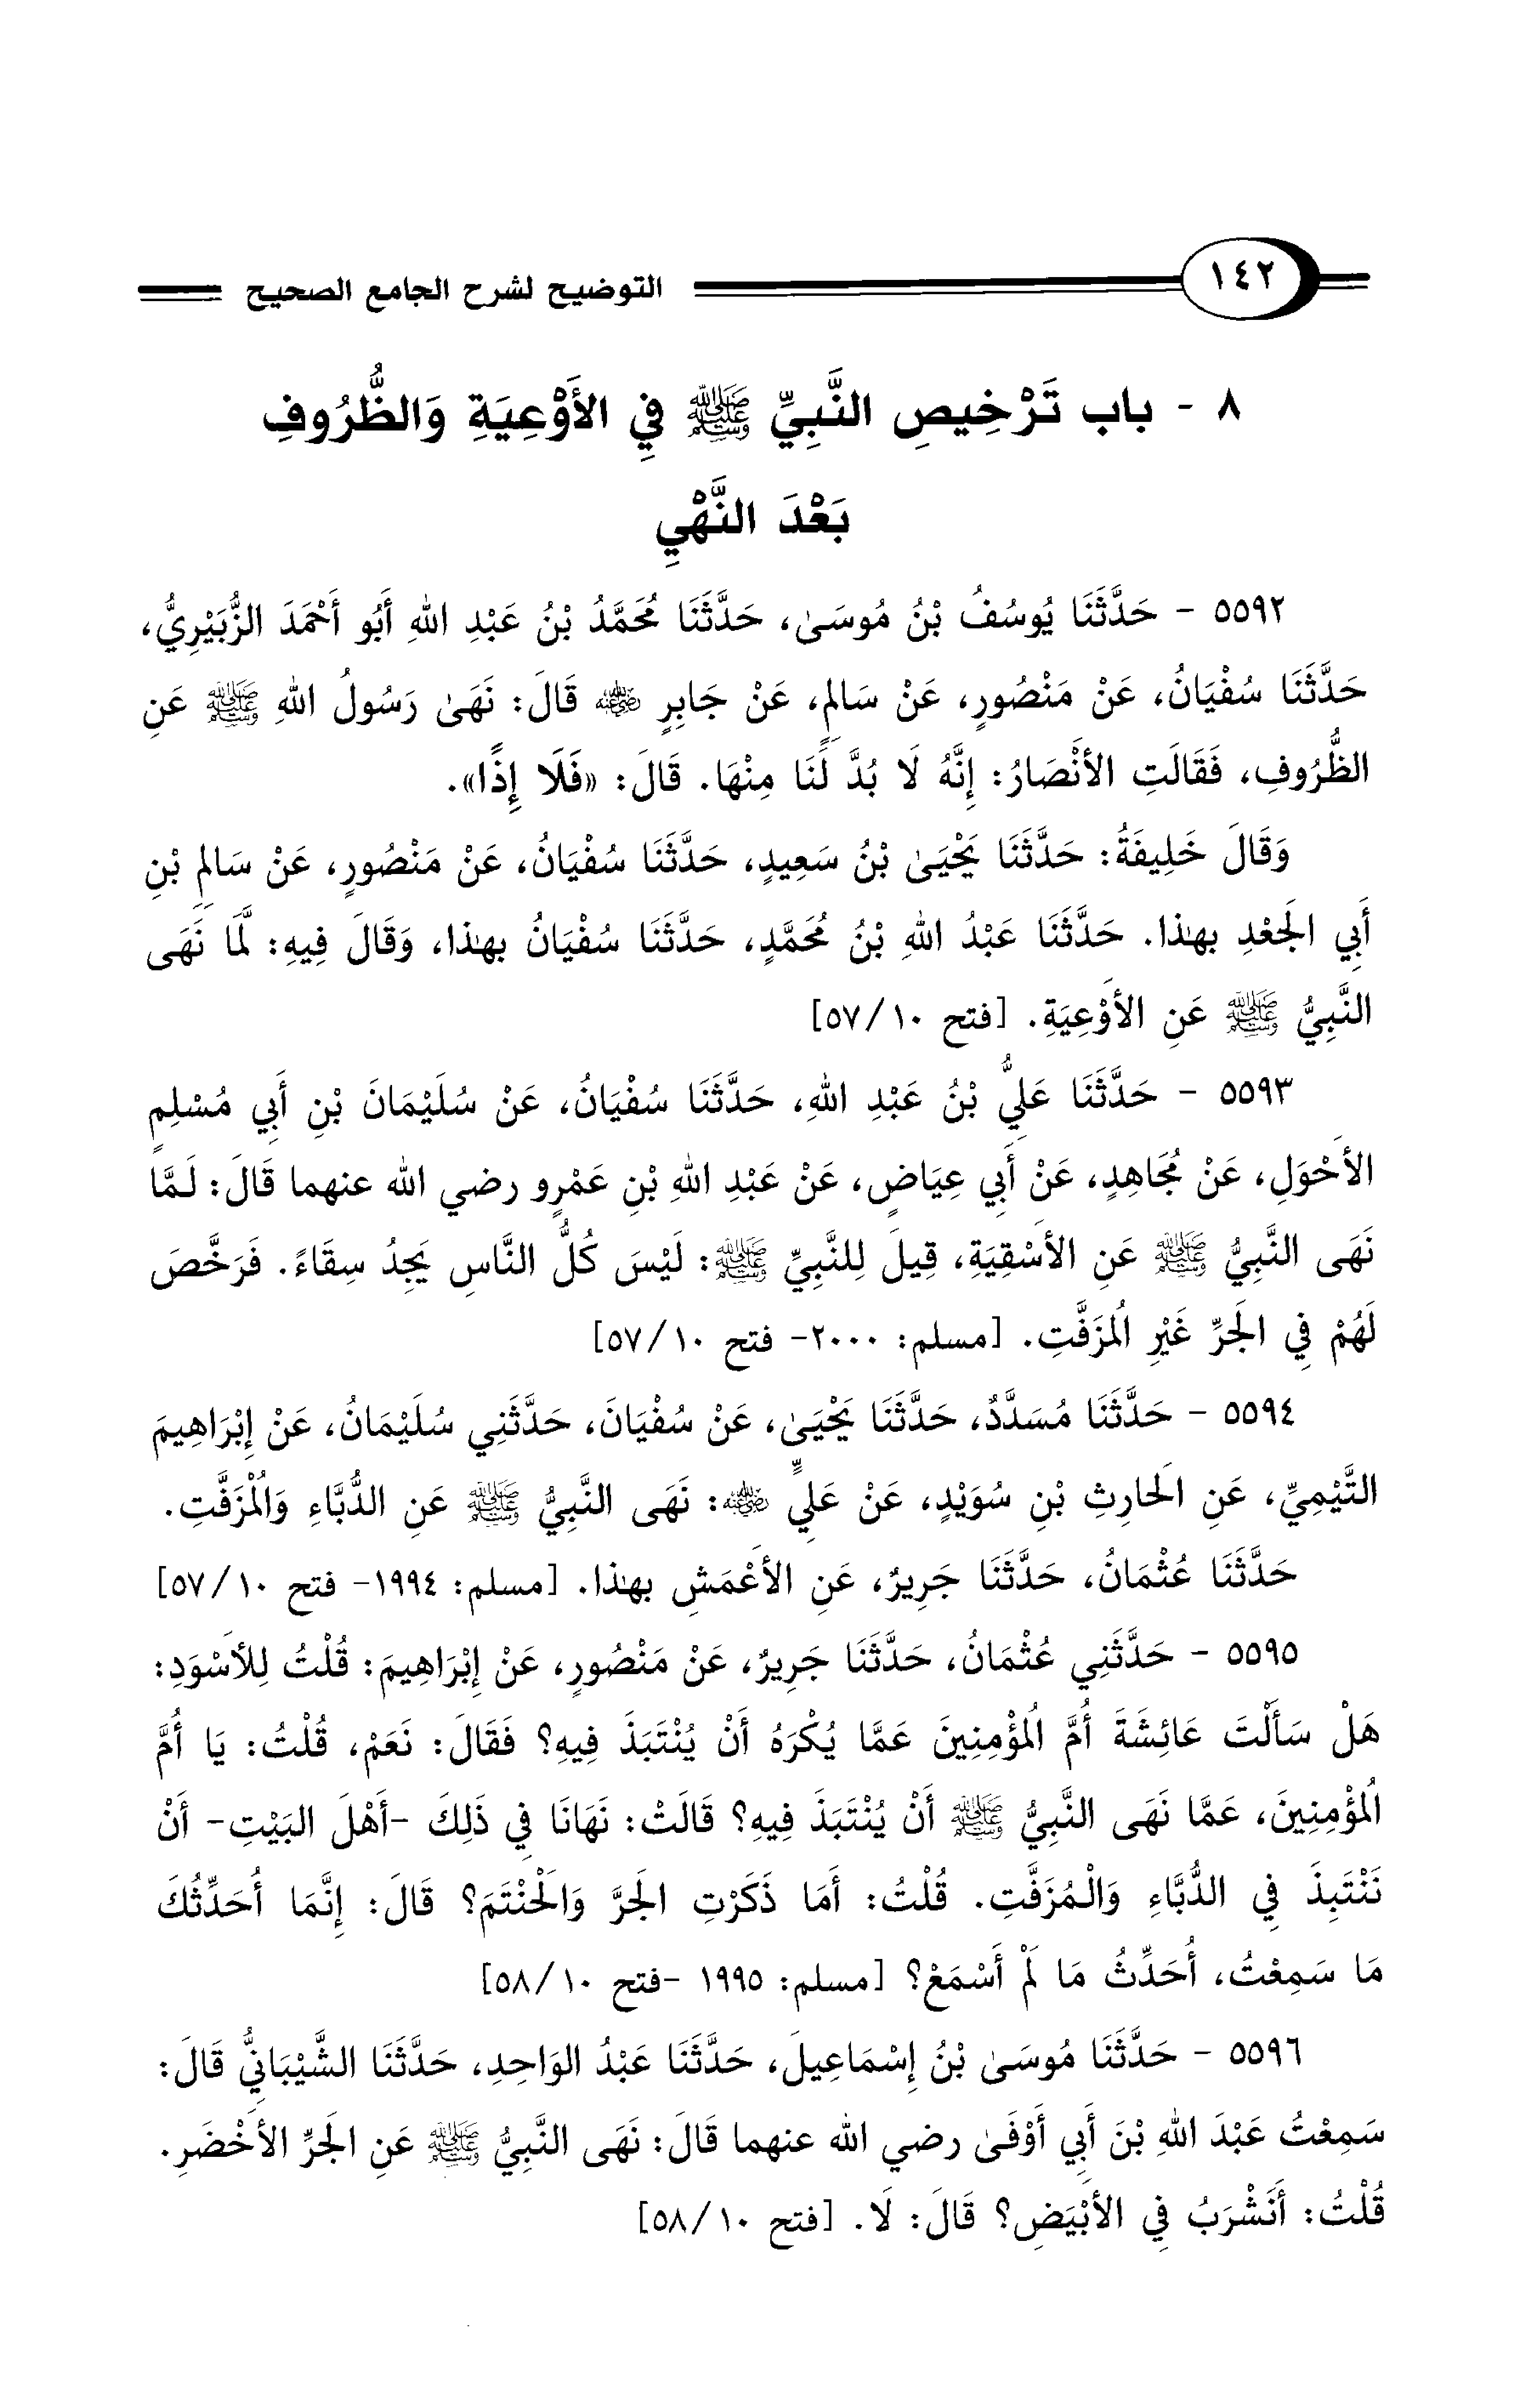 ١٤٢ التوضيح لشرح الجامع الصحيح
٨ - باب تَرْخِيصِ النَّبِيِّ ﷺ فِي الأَوْعِيَةِ وَالظُّرُوفِ
بَعْدَ النَّهْيِ
٥٥٩٢ - حَدَّثَنَا يُوسُفُ بْنُ مُوسَىٰ، حَدَّثَنَا مُحَمَّدُ بْنُ عَبْدِ اللهِ أَبُو أَحْمَدَ الزُّبَيْرِيُّ،
حَدَّثَنَا سُفْيَانُ، عَنْ مَنْصُورٍ، عَنْ سَالِمٍ، عَنْ جَابِرٍ رضي الله عنه قَالَ: نَهَىٰ رَسُولُ اللهِ ﷺ عَنِ
الظُّرُوفِ، فَقَالَتِ الأَنْصَارُ: إِنَّهُ لَا بُدَّ لَنَا مِنْهَا. قَالَ: «فَلَا إِذًا».
وَقَالَ خَلِيفَةُ: حَدَّثَنَا يَحْيَىٰ بْنُ سَعِيدٍ، حَدَّثَنَا سُفْيَانُ، عَنْ مَنْصُورٍ، عَنْ سَالِمِ بْنِ
أَبِي الجَعْدِ بهذا. حَدَّثَنَا عَبْدُ اللهِ بْنُ مُحَمَّدٍ، حَدَّثَنَا سُفْيَانُ بهذا، وَقَالَ فِيهِ: لَمَّا نَهَى
النَّبِيُّ ﷺ عَنِ الأَوْعِيَةِ. [فتح ١٠/٥٧]
٥٥٩٣ - حَدَّثَنَا عَلِيُّ بْنُ عَبْدِ اللهِ، حَدَّثَنَا سُفْيَانُ، عَنْ سُلَيْمَانَ بْنِ أَبِي مُسْلِمٍ
الأَحْوَلِ، عَنْ مُجَاهِدٍ، عَنْ أَبِي عِيَاضٍ، عَنْ عَبْدِ اللهِ بْنِ عَمْرٍو رضي الله عنهما قَالَ: لَمَّا
نَهَى النَّبِيُّ ﷺ عَنِ الأَسْقِيَةِ، قِيلَ لِلنَّبِيِّ ﷺ: لَيْسَ كُلُّ النَّاسِ يَجِدُ سِقَاءً. فَرَخَّصَ
لَهُمْ فِي الجَرِّ غَيْرِ المُزَفَّتِ. [مسلم: ٢٠٠٠- فتح ١٠/٥٧]
٥٥٩٤ - حَدَّثَنَا مُسَدَّدٌ، حَدَّثَنَا يَحْيَىٰ، عَنْ سُفْيَانَ، حَدَّثَنِي سُلَيْمَانُ، عَنْ إِبْرَاهِيمَ
التَّيْمِيِّ، عَنِ الحَارِثِ بْنِ سُوَيْدٍ، عَنْ عَلِيٍّ رضي الله عنه: نَهَى النَّبِيُّ ﷺ عَنِ الدُّبَّاءِ وَالْمُزَفَّتِ.
حَدَّثَنَا عُثْمَانُ، حَدَّثَنَا جَرِيرٌ، عَنِ الأَعْمَشِ بهذا. [مسلم: ١٩٩٤- فتح ١٠/٥٧]
٥٥٩٥ - حَدَّثَنِي عُثْمَانُ، حَدَّثَنَا جَرِيرٌ، عَنْ مَنْصُورٍ، عَنْ إِبْرَاهِيمَ: قُلْتُ لِلأَسْوَدِ:
هَلْ سَأَلْتَ عَائِشَةَ أُمَّ المُؤْمِنِينَ عَمَّا يُكْرَهُ أَنْ يُنْتَبَذَ فِيهِ؟ فَقَالَ: نَعَمْ، قُلْتُ: يَا أُمَّ
المُؤْمِنِينَ، عَمَّا نَهَى النَّبِيُّ ﷺ أَنْ يُنْتَبَذَ فِيهِ؟ قَالَتْ: نَهَانَا فِي ذَلِكَ -أَهْلَ البَيْتِ- أَنْ
نَنْتَبِذَ فِي الدُّبَّاءِ وَالْمُزَفَّتِ. قُلْتُ: أَمَا ذَكَرْتِ الجَرَّ وَالْحَنْتَمَ؟ قَالَ: إِنَّمَا أُحَدِّثُكَ
مَا سَمِعْتُ، أُحَدِّثُ مَا لَمْ أَسْمَعْ؟ [مسلم: ١٩٩٥ -فتح ١٠/٥٨]
٥٥٩٦ - حَدَّثَنَا مُوسَىٰ بْنُ إِسْمَاعِيلَ، حَدَّثَنَا عَبْدُ الوَاحِدِ، حَدَّثَنَا الشَّيْبَانِيُّ قَالَ:
سَمِعْتُ عَبْدَ اللهِ بْنَ أَبِي أَوْفَىٰ رضي الله عنهما قَالَ: نَهَى النَّبِيُّ ﷺ عَنِ الجَرِّ الأَخْضَرِ.
قُلْتُ: أَنَشْرَبُ فِي الأَبْيَضِ؟ قَالَ: لَا. [فتح ١٠/٥٨]